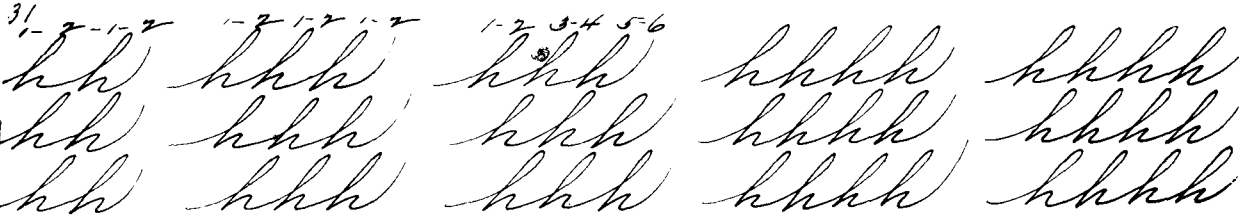 31
1-2-1-2 1-2 1-2 1-2 1-2 3-4 5-6
hh hhh hhh hhhh hhhh
hh hhh hhh hhhh hhhh
hh hhh hhh hhhh hhhh